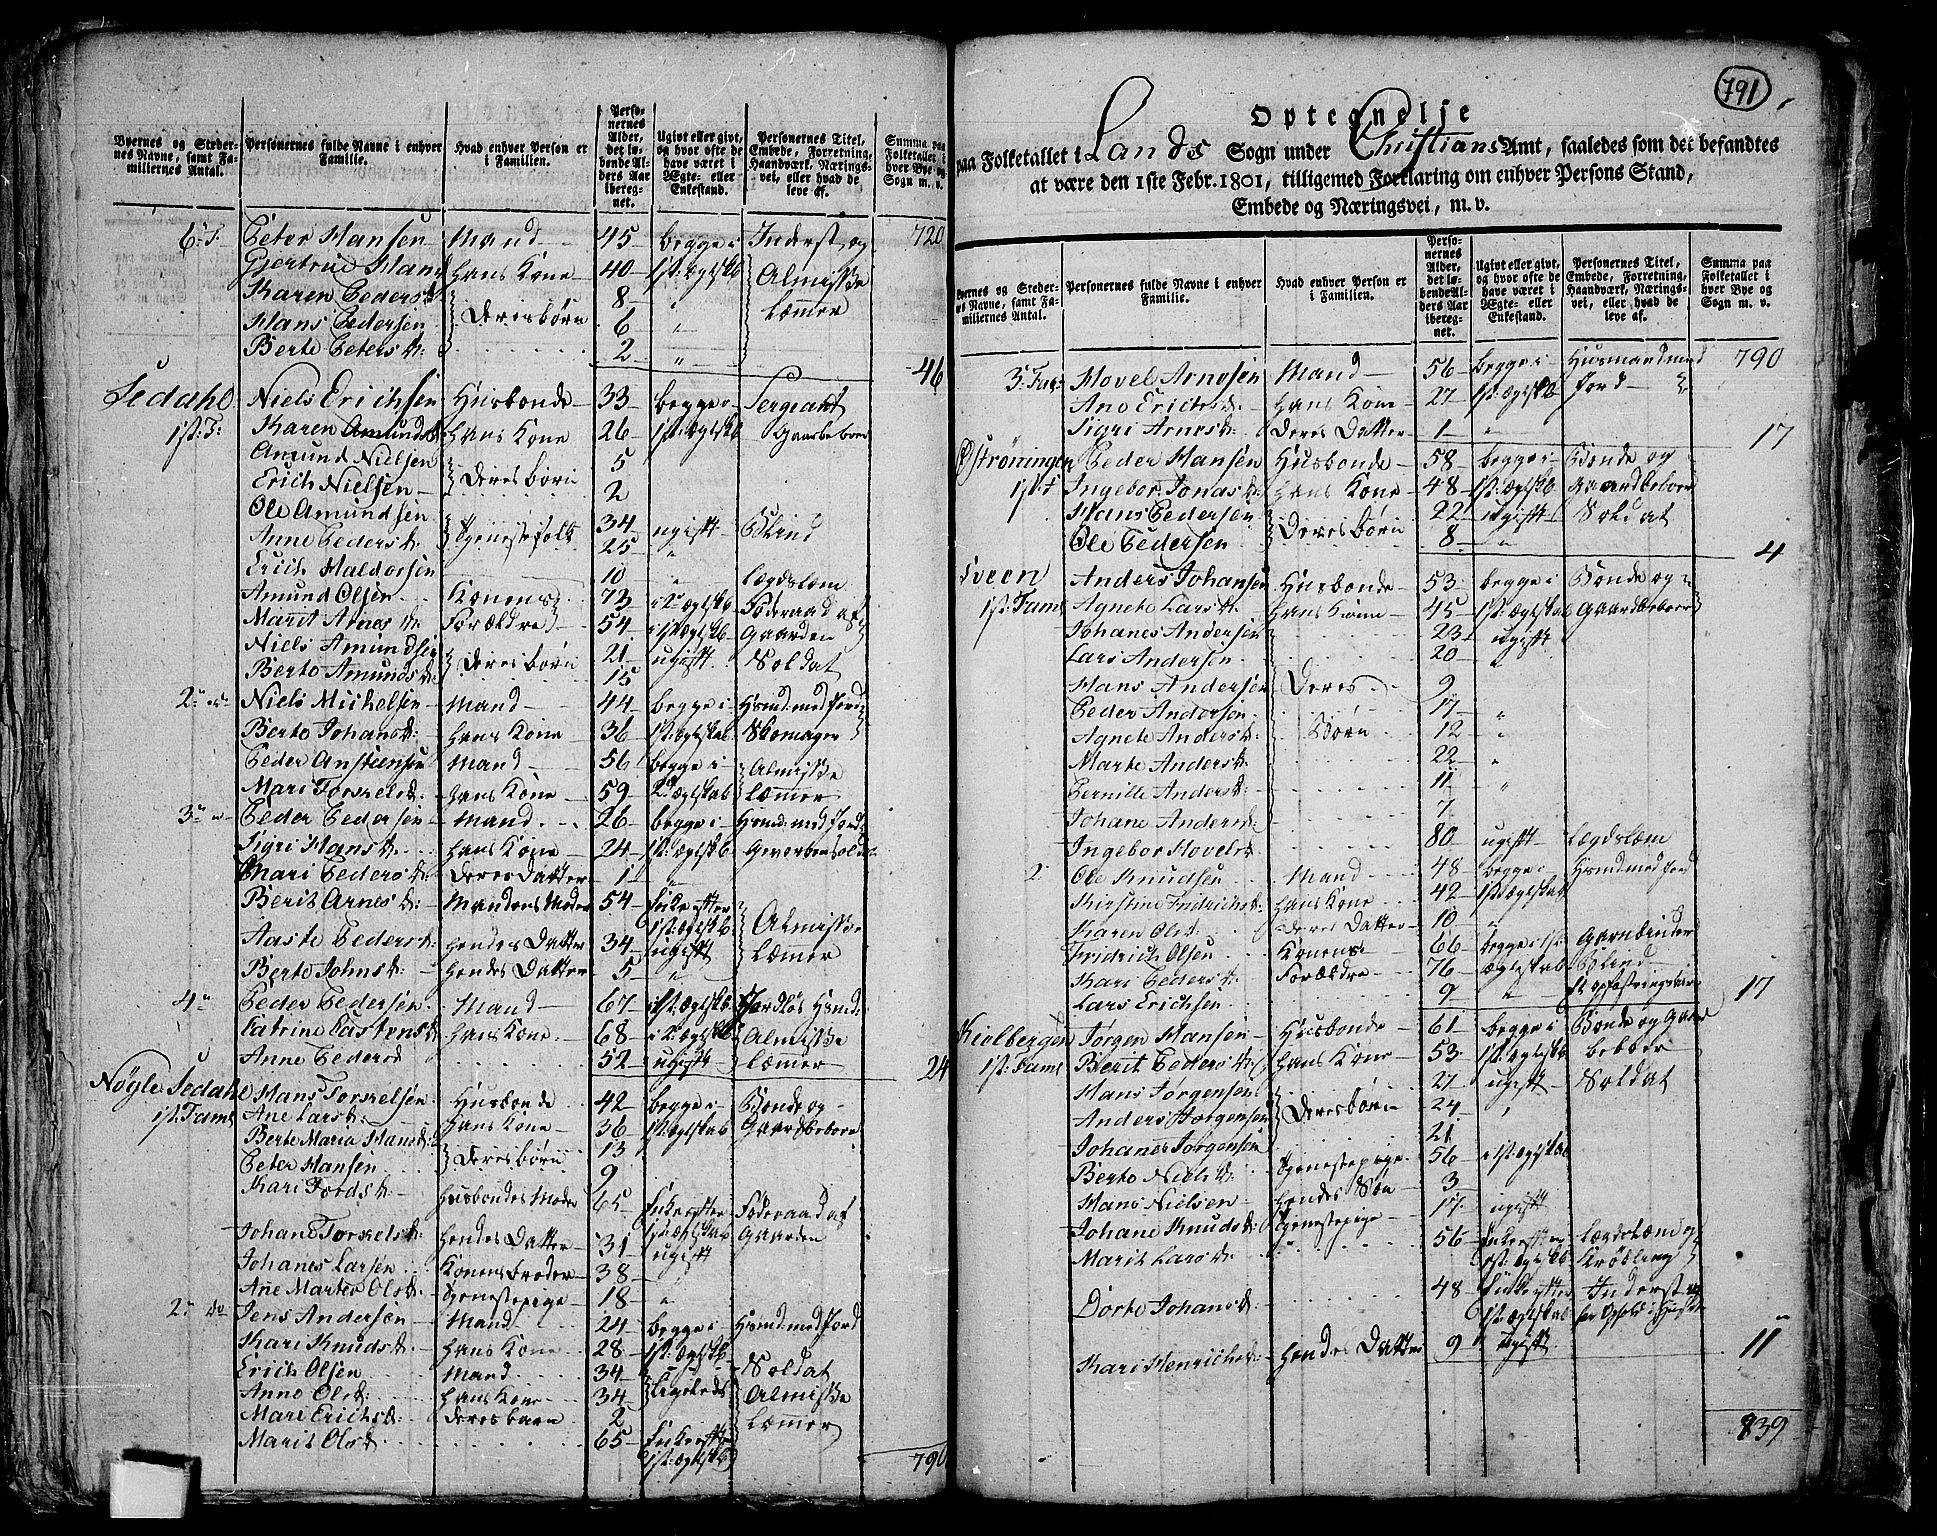 Byernes og Steder-
nes Navne, samt Fa-
miliernes Antal.
Personernes fulde Navne i enhver
Familie.
Hvad enhver Person er
i Familien.
Perso-
nernes
Alder,
det lø-
bende Al-
ders Aar
iberegnet.
Ugivt eller givt,
og hvor ofte de
have været i
Ægte- eller
Enkestand.
Personernes Titel,
Embede, Forretning,
Haandværk, Nærings-
vei, eller hvad de
leve af.
Summa paa
Folketallet i
hver Bye og
Sogn m. v.
6te F. Peter Hansen Mand 45 begge i Inderst og 720
Gjertrue Hans hans Kone 40 1st: ægtskb Almisse
Karen Peders d: 8 " Lemmer
Hans Pedersen Deres børn 6 "
Berte Peters d: 2 " 46
Sedahl Niels Erichsen Husbonde 33 begge i Sergeant
1st: F: Karen Amunds d: hans Kone 26 1st: ægtskb Gaardbeboer
Amund Nielsen 5
Erich Nielsen Deres børn 2
Ole Amundsen 34 ugift Blind
Anne Peders d: Tjenestefolk 25 "
Erich Haldorsen 10 " Lægdslem
Amund Olsen Konens 73 i 2 ægtskb Føderaad af
Marit Arnes d: Forældre 54 i 1st ægtskb Gaarden
Niels Amundsen 21 ugift Soldat
Berte Amunds d: Deres børn 15
2 do Niels Michelsen Mand 44 begge i Hsmd: med Jord
Berte Johans d: hans Kone 36 1st: ægtskab Skomager
Peder Anstensen Mand 56 begge i Almisse
Mari Torkels d: hans Kone 59 2 ægtskab Lemmer
3 " Peder Pedersen Mand 26 begge i Hsmd: med Jord
Sigri Hans d: hans Kone 24 1st: ægtskb Gevorben Soldat
Kari Peders d: Deres Datter 1 "
Berit Arnes d: Mandens Moder 54 Enke efter
1st: ægtskb Almisse
Aaste Peders d: hendes Datter 34 ugift Lemmer
Berte Johns d: hendes Datter 5 "
4 " Peder Pedersen Mand 67 i 1st: ægtskb Jordløs Hsmd:
Catrine Tostens d: hans Kone 68 i 2 ægtskb Almisse
Anne Peders d 52 ugift Lemmer 24
Nøgle Sedahl Hans Torkelsen Husbonde 42 begge i Bonde og
1st: Faml Ane Lars d: hans Kone 36 1st: ægtskab Gaardbeboer
Berte Maria Hans d: 13
Peter Hansen Deres børn 9
Kari Tords d: Husbondes Moder 65 Enke efter Føderaad af
1st: ægtskab Gaarden
Johane Torkels d: hendes Datter 31 ugift
Johanes Larsen Konens Broder 38 "
Ane Marte Ols d: Tjenestepige 18 "
2 do Jens Andersen Mand 24 begge i Hsmd: med Jord
Kari Knuds d: hans Kone 28 1st: ægtskb
Erich Olsen Mand 34 Soldat
Anne Ols d: hans Kone 34 Ligeledes Almisse
Mari Erichs d: Deres barn 2 Lemmer
Marit Ols d: 65 Enke efter
1st: ægtskb 790
791
Optegnelse
paa Folketallet i Lands Sogn under Christians Amt, saaledes som det befandtes
at være den 1ste Febr. 1801, tilligemed Forklaring om enhver Persons Stand,
Embede og Næringsvei, m. v.
Byernes og Steder-
nes Navne, samt Fa-
miliernes Antal.
Personernes fulde Navne i enhver
Familie.
Hvad enhver Person er
i Familien.
Perso-
nernes
Alder,
det lø-
bende Al-
ders Aar
iberegnet.
Ugivt eller givt,
og hvor ofte de
have været i
Ægte- eller
Enkestand.
Personernes Titel,
Embede, Forretning,
Haandværk, Nærings-
vei, eller hvad de
leve af.
Summa paa
Folketallet i
hver Bye og
Sogn m. v.
3 Fam: Hovel Arnesen Mand 56 begge i Husmand med 790
Ane Erichs d: hans Kone 27 1st: ægtskb Jord
Sigri Arnes d: Deres Datter 1 " 17
Østrøningen Peder Hansen Husbonde 58 begge i Bonde og
1st: f Ingebor Jonas d: hans Kone 48 1st: ægtskb Gaardbeboer
Hans Pedersen 22 ugift Soldat
Ole Pedersen Deres børn 8 " 4
Sveen Anders Johansen Husbonde 53 begge i Bonde og
1st: Faml Agnete Lars d: hans Kone 45 1st: ægtskab Gaardbeboer
Johanes Andersen 23 ugift
Lars Andersen 20 "
Hans Andersen Deres 9
Peder Andersen 17 "
Agnete Anders d: Børn 12 "
Marte Anders d: 22 "
Pernille Anders d: 11 "
Johane Anders d: 7
Ingebor Hovels d: 80 ugift Lægdslem
2 Ole Knudsen Mand 48 begge i Hsmd med Jord
Kirstine Fridrichs d: hans Kone 42 1st: ægtskab
Karen Ols d: Deres Datter 10 "
Fridrich Olsen Konens 66 begge i 1st: Garnbinder
Kari Peders d: Forældre 76 ægteskab Blind
Lars Erichsen 9 " 17
Kiolbergen Jørgen Hansen Husbonde 61 begge i Bonde og Gaard
1st: Faml Berit Peders d: hans Kone 53 1st: ægtskb beboer
Hans Jørgensen 27 ugift Soldat
Anders Jørgensen Deres børn 24 "
Johanes Jørgensen 21
Berte Niels d: Tjenestepige 56 i 1st: ægtskab
Hans Nielsen hendes Søn 3
Johane Knuds d: Tjenestepige 17 ugift
Marit Lars d: 56 Enke efter Lægdslem og
1st: ægtskb Krøbling
Dorte Johans d: 48 Enke efter Inderst
1st: ægtskab
Kari Henrichs d: hendes Datter 9 ugift 11
839